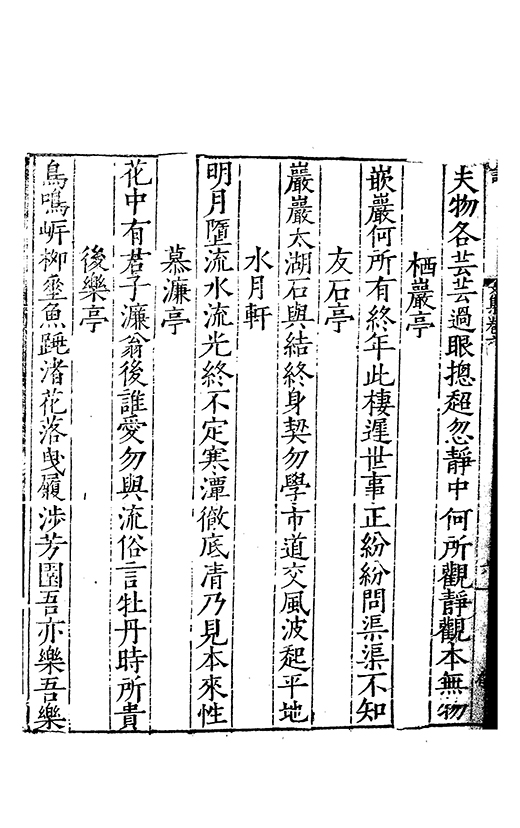 夫物各芸芸過眼摠超忽靜中何所觀靜觀本無物
栖巖亭
嵌巖何所有終年此棲遲世事正紛紛問渠渠不知
友石亭
巖巖太湖石與結終身契勿學市道交風波起平地
水月軒
明月墮流水流光終不定寒潭徹底清乃見本來性
慕濂亭
花中有君子濂翁後誰愛勿與流俗言牡丹時所貴
後樂亭
鳥鳴岍柳壘魚跳渚花落曳履涉芳園吾亦樂吾樂